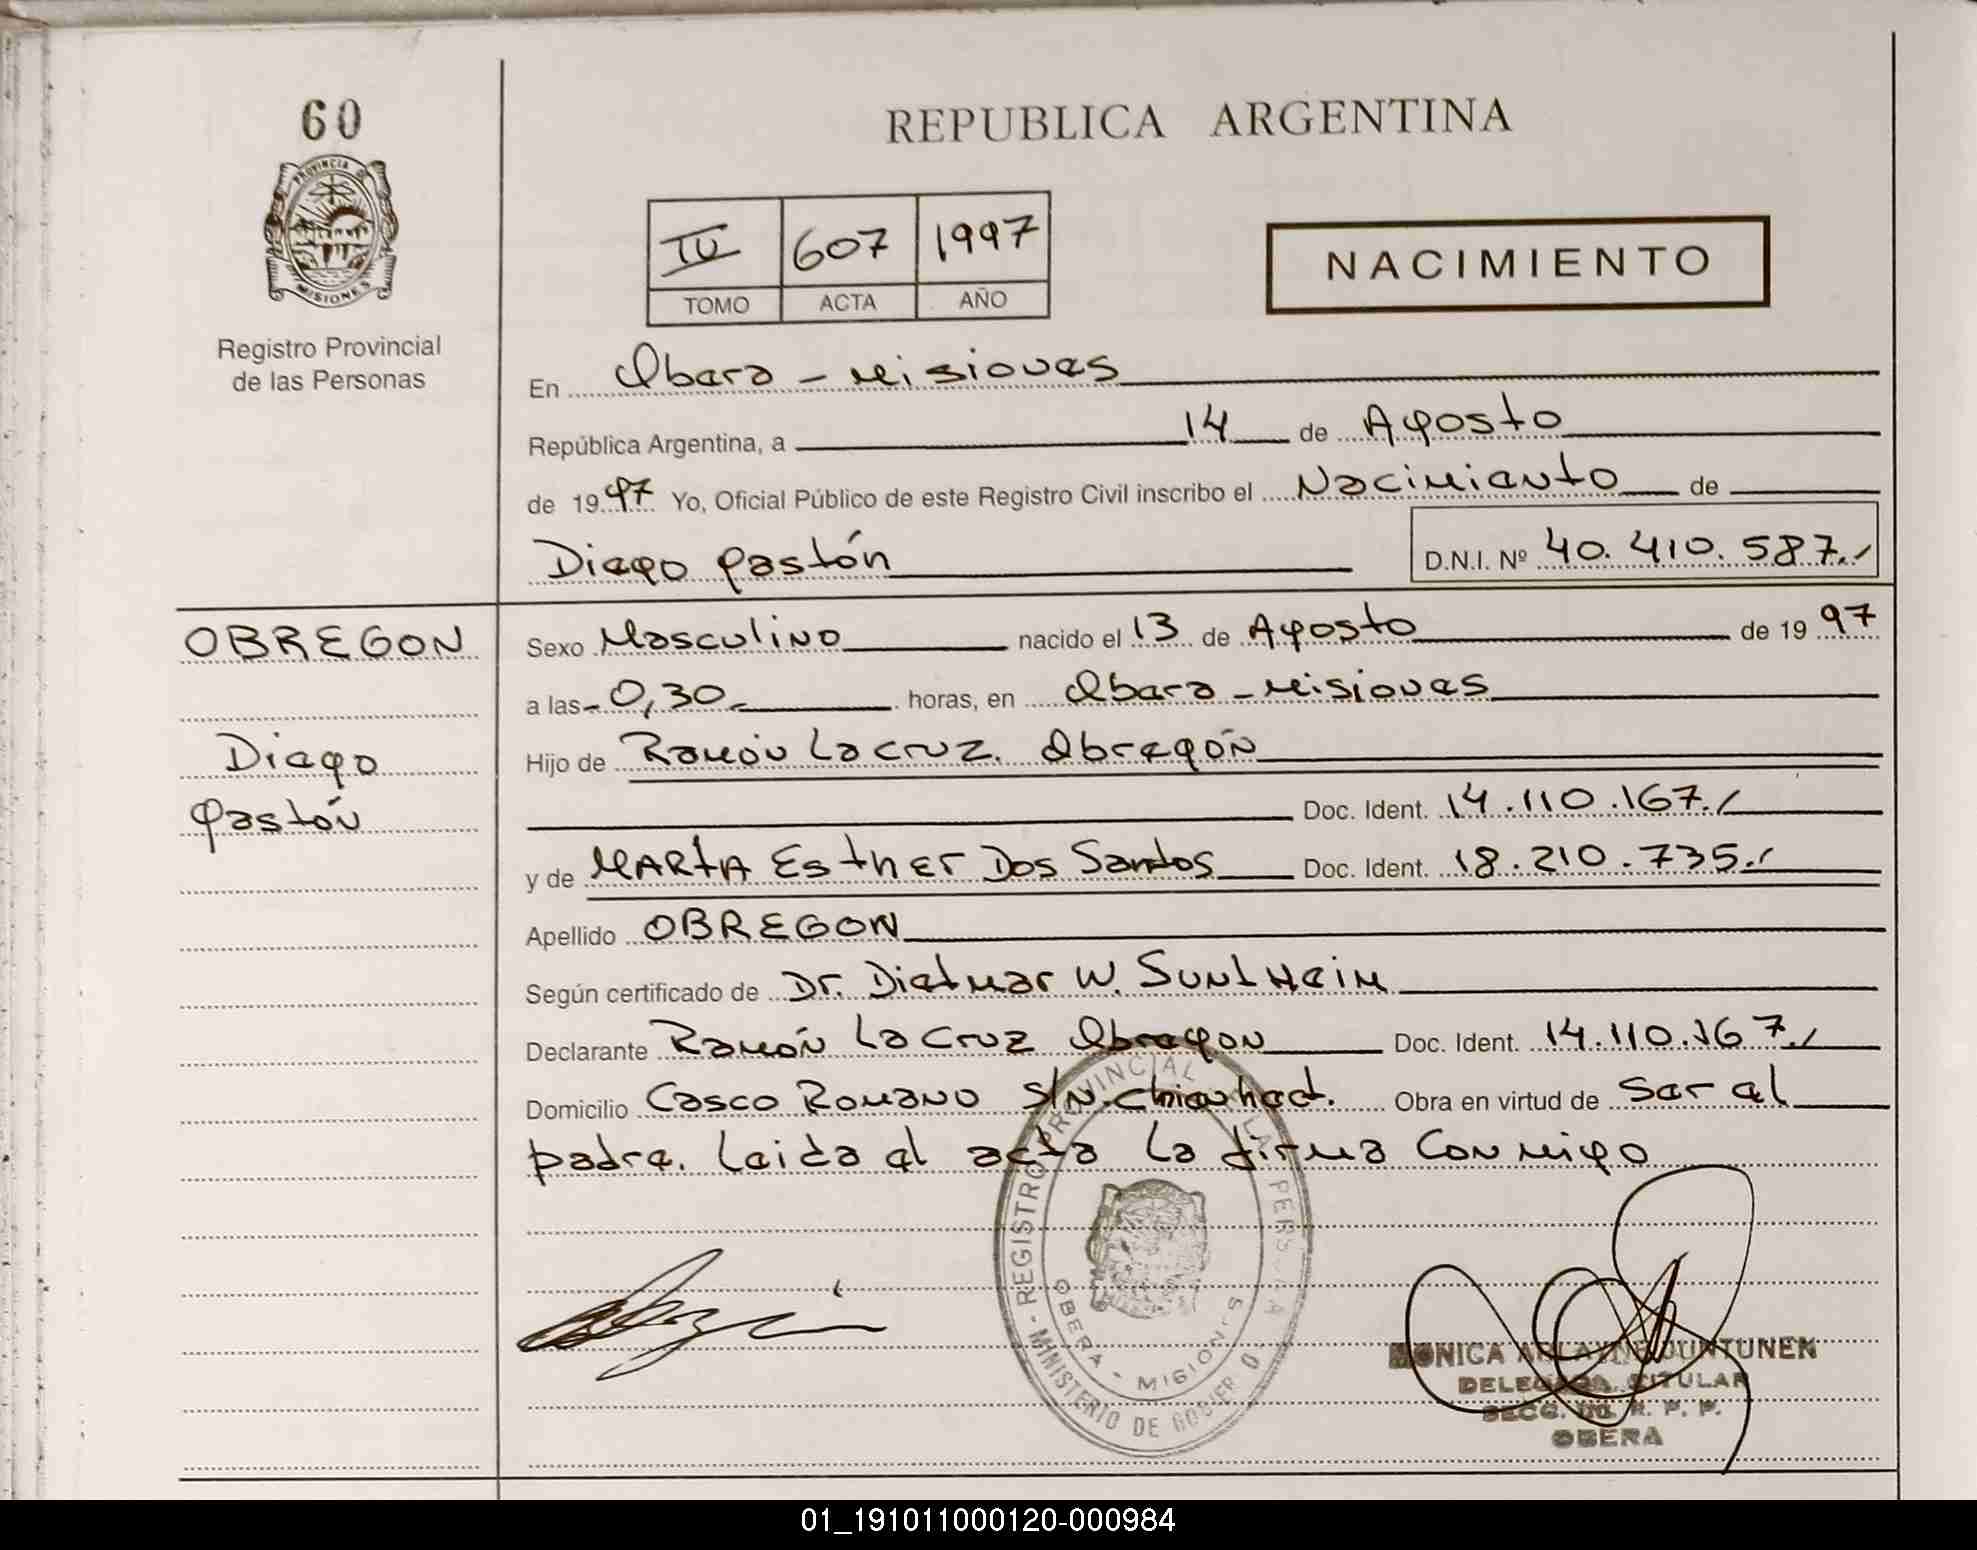 60
PROVINCIA DE
MISIONES
Registro Provincial
de las Personas
REPUBLICA ARGENTINA
IV 607 1997
TOMO ACTA AÑO
NACIMIENTO
En Obera - Misiones
República Argentina, a 14 de Agosto
de 1997 Yo, Oficial Público de este Registro Civil inscribo el Nacimiento de
Diego Gastón D.N.I. Nº 40.410.587./
OBREGON
Diego
Gastón
Sexo Masculino nacido el 13 de Agosto de 1997
a las - 0,30 - horas, en Obera - Misiones
Hijo de Ramón La Cruz Obregón
Doc. Ident. 14.110.167./
y de MARTA EsthER Dos Santos Doc. Ident. 18.210.735./
Apellido OBREGON
Según certificado de Dr. Dietmar W. Suntheim
Declarante Ramón La Cruz Obregon Doc. Ident. 14.110.167./
Domicilio Casco Romano S/N. Obra en virtud de Ser el
padre. Leida el acta la firma Conmigo
REGISTRO PROVINCIAL DE LAS PERSONAS
MINISTERIO DE GOBIERNO
OBERA - MISIONES
MONICA JUNTUNEN
DELEGADA TITULAR
SECC. R. P. P.
OBERA
01_191011000120-000984